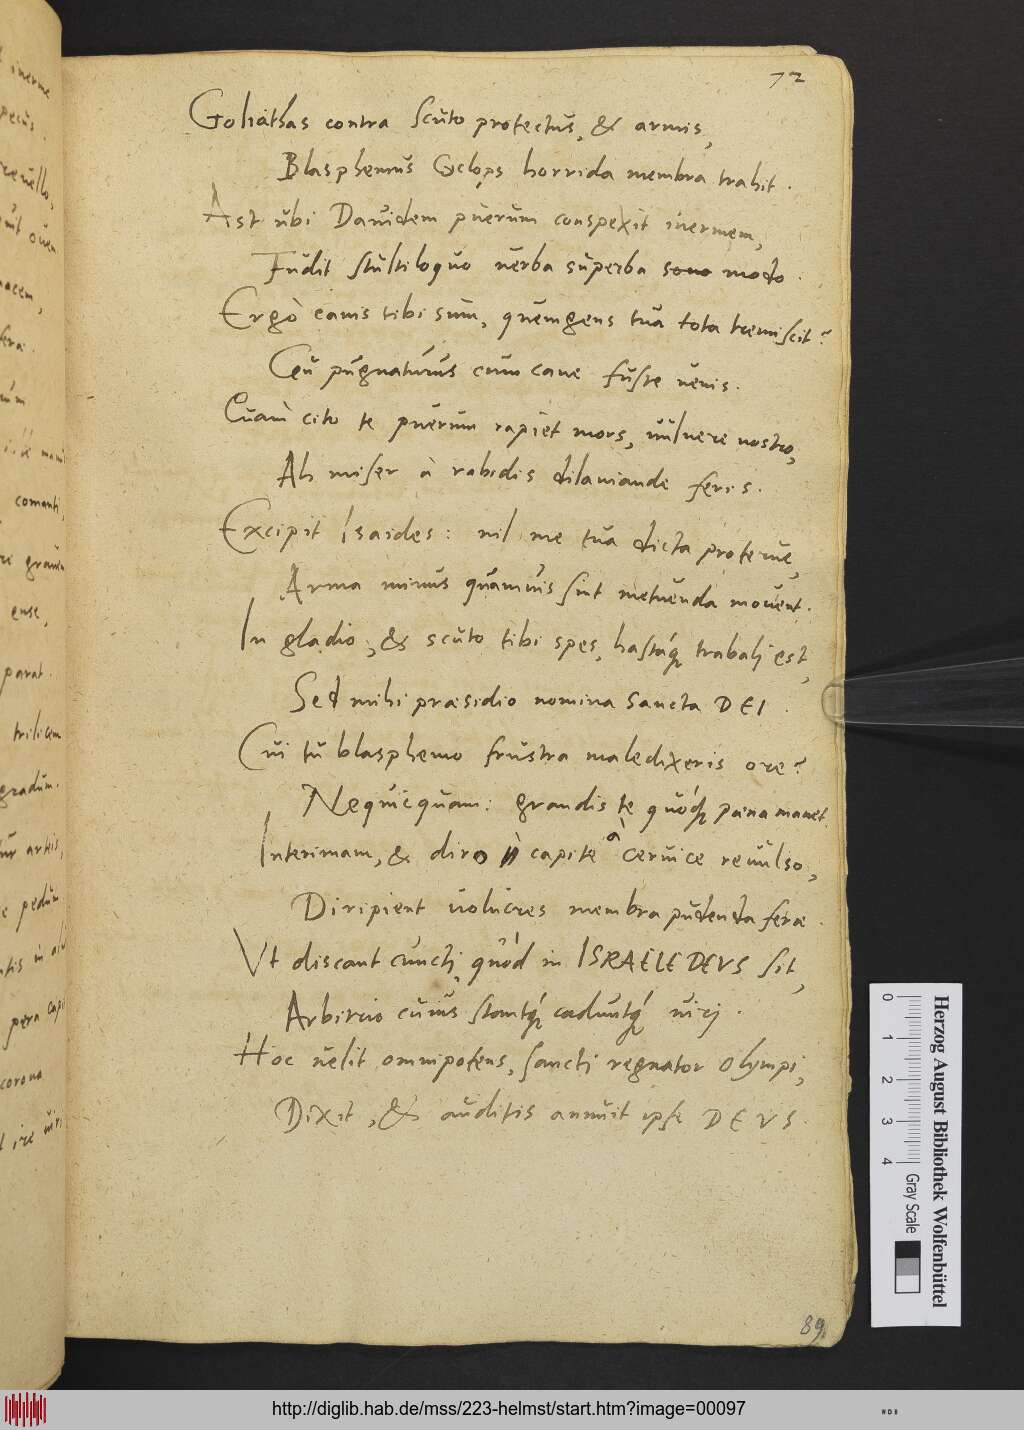 72
Goliathas contra scuto protectus, & armis,
Blasphemus Cyclops horrida membra trahit.
Ast ubi Dauidem puerum conspexit inermem,
Fudit stultiloquo uerba superba sono modo.
Ergò canis tibi sum, quem gens tua tota tremiscit?
Ceu pugnaturus cum cane fuste uenis.
Quàm cito te puerum rapiet mors, uulnere nostro,
Ah miser à rabidis dilaniande feris.
Excipit Isaides: nil me tua dicta proteruè,
Arma minus quamuis sint metuenda mouent.
In gladio, & scuto tibi spes, hastaq́ue trabali est,
Sed mihi præsidio nomina sancta DEI.
Cui tu blasphemo frustra maledixeris ore?
Nequicquam: grandis te quoq́ue pæna manet.
Interimam, & diro capite à ceruice reuulso,
Diripient uolucres membra pudenda feræ.
Vt discant cuncti, quòd in ISRAELE DEVS sit,
Arbitrio cuius stantq́ue caduntq́ue uiri.
Hoc uelit omnipotens, sancti regnator Olympi,
Dixit, & auditis annuit ipse DEVS.
89
Herzog August Bibliothek Wolfenbüttel
0 1 2 3 4 Gray Scale
http://diglib.hab.de/mss/223-helmst/start.htm?image=00097